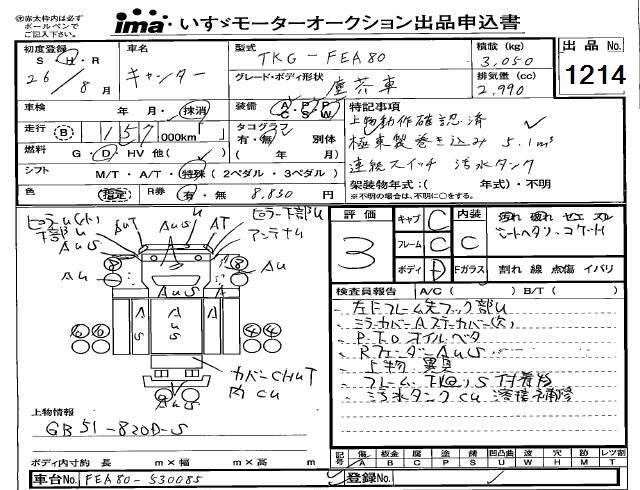 ※赤太枠内は必ず
ボールペンで
ご記入下さい。
ima いすゞモーターオークション出品申込書
初度登録 S H R 26 / 8 月
車名 キャンター
型式 TKG-FEA80
グレード・ボディ形状 塵芥車
積載 (kg) 3,050
排気量 (cc) 2,990
出品 No. 1214
車検 年・月・抹消
装備 A/C・P/S・P/W
走行 B 157 000km
タコグラフ 有・無 別体 ( 年 / 月)
燃料 G・D・HV 他( )
シフト M/T・A/T・特殊 (2ペダル・3ペダル)
色 指定 R券 有・無 8,830 円
特記事項
上物動作確認済
極東製巻き込み 5.1m³
連続スイッチ 汚水タンク
架装物年式:( 年式)・不明
※不明の場合は、不明に○をする。
ピラーU(小) AU AT ピラー下部U
下部U AUS アンテナU
A
AU AU
AUS
A S AUS A S
⑥ ⑥ ④ ④
カバーCHUT
内CU
AUS
上物情報
GB51-820D-S
ボディ内寸約 長 m×幅 m×高 m
車台No. FEA80-530085
評価 3
キャブ C 内装 C
フレーム C
ボディ D Fガラス 割れ 線 点傷 イバリ
検査員報告 A/C ( ) B/T ( )
左下フレーム先フック部U
ミラーカバーAステーカバー欠
P.T.Oオイルベタ
RフェンダーAUS
上物異臭
フレーム下回りS付着物
汚水タンクCU 溶接補修
記号 傷 A 板金 B 腐 C 塗 P 錆 S 凹凸曲 U 波 W 穴 H 跡 M レツ割 T
登録No.